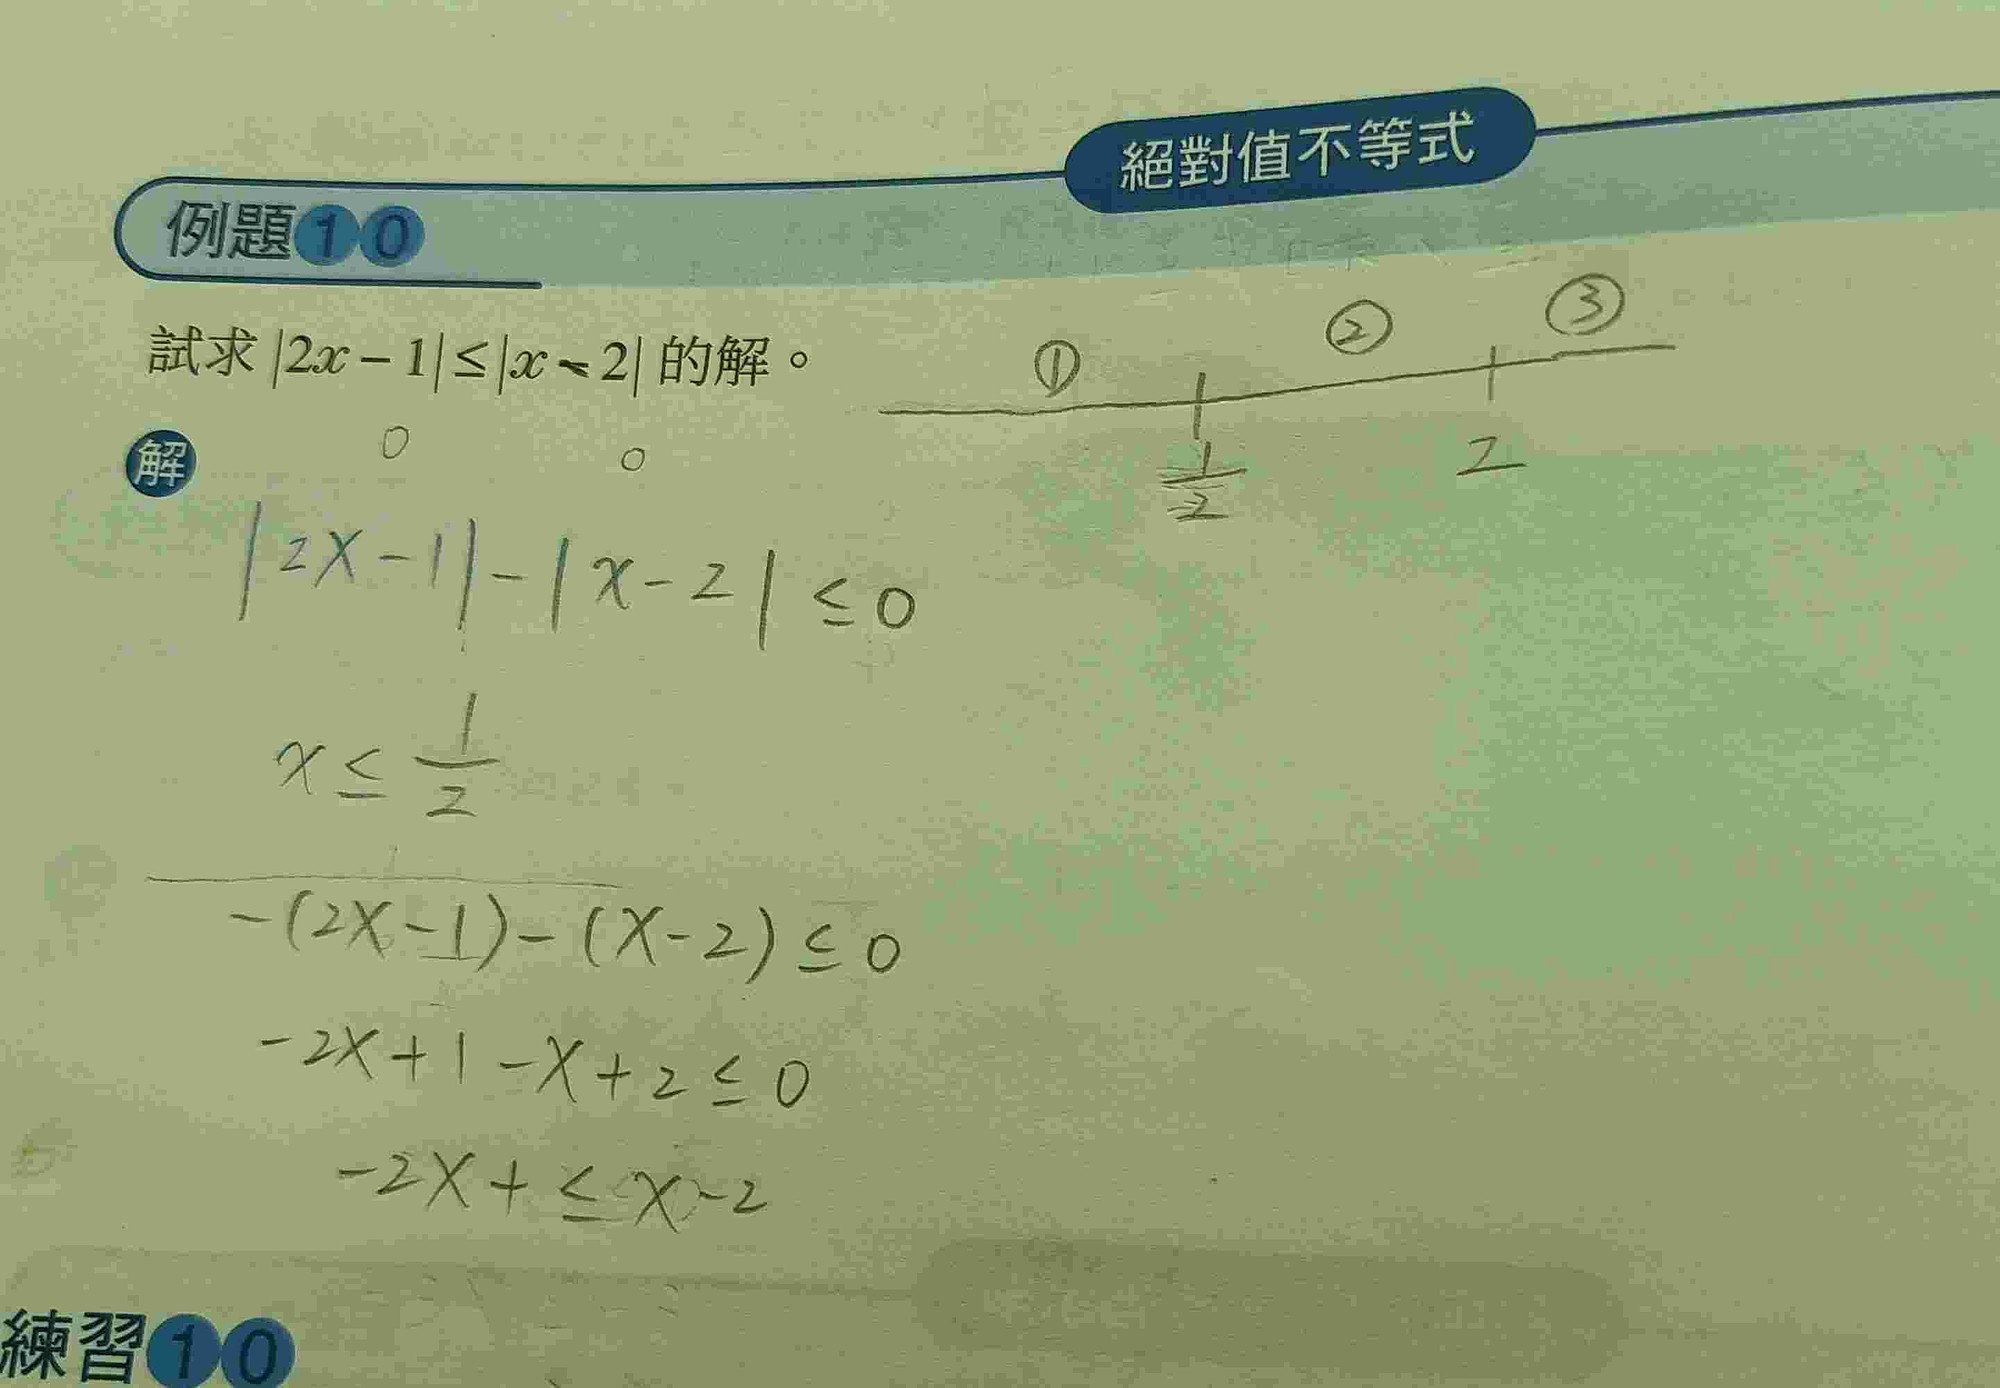 絕對值不等式
例題10
試求 |2x − 1| ≤ |x − 2| 的解。
① ② ③
1/2 2
解
0 0
|2x-1|-|x-2| ≤ 0
x ≤ 1/2
-(2x-1)-(x-2) ≤ 0
-2x+1-x+2 ≤ 0
-2x+ ≤ x-2
練習10